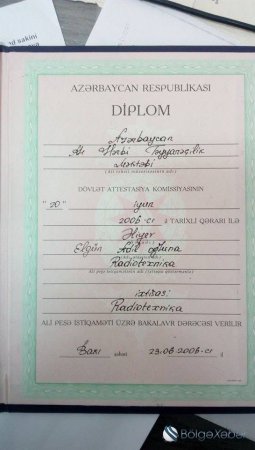 AZƏRBAYCAN RESPUBLİKASI
DİPLOM
Azərbaycan
Ali Hərbi Təyyarəçilik
Məktəbi
(Ali təhsil müəssisəsinin adı)
DÖVLƏT ATTESTASİYA KOMİSSİYASININ
"20" iyun
2006-cı il TARİXLİ QƏRARI İLƏ
Elgün Adil oğluna
Radiotexnika
ixtisası
Radiotexnika
ALİ PEŞƏ İSTİQAMƏTİ ÜZRƏ BAKALAVR DƏRƏCƏSİ VERİLİR
Bakı şəhəri 29.06.2006-cı il
BölgəXəbər